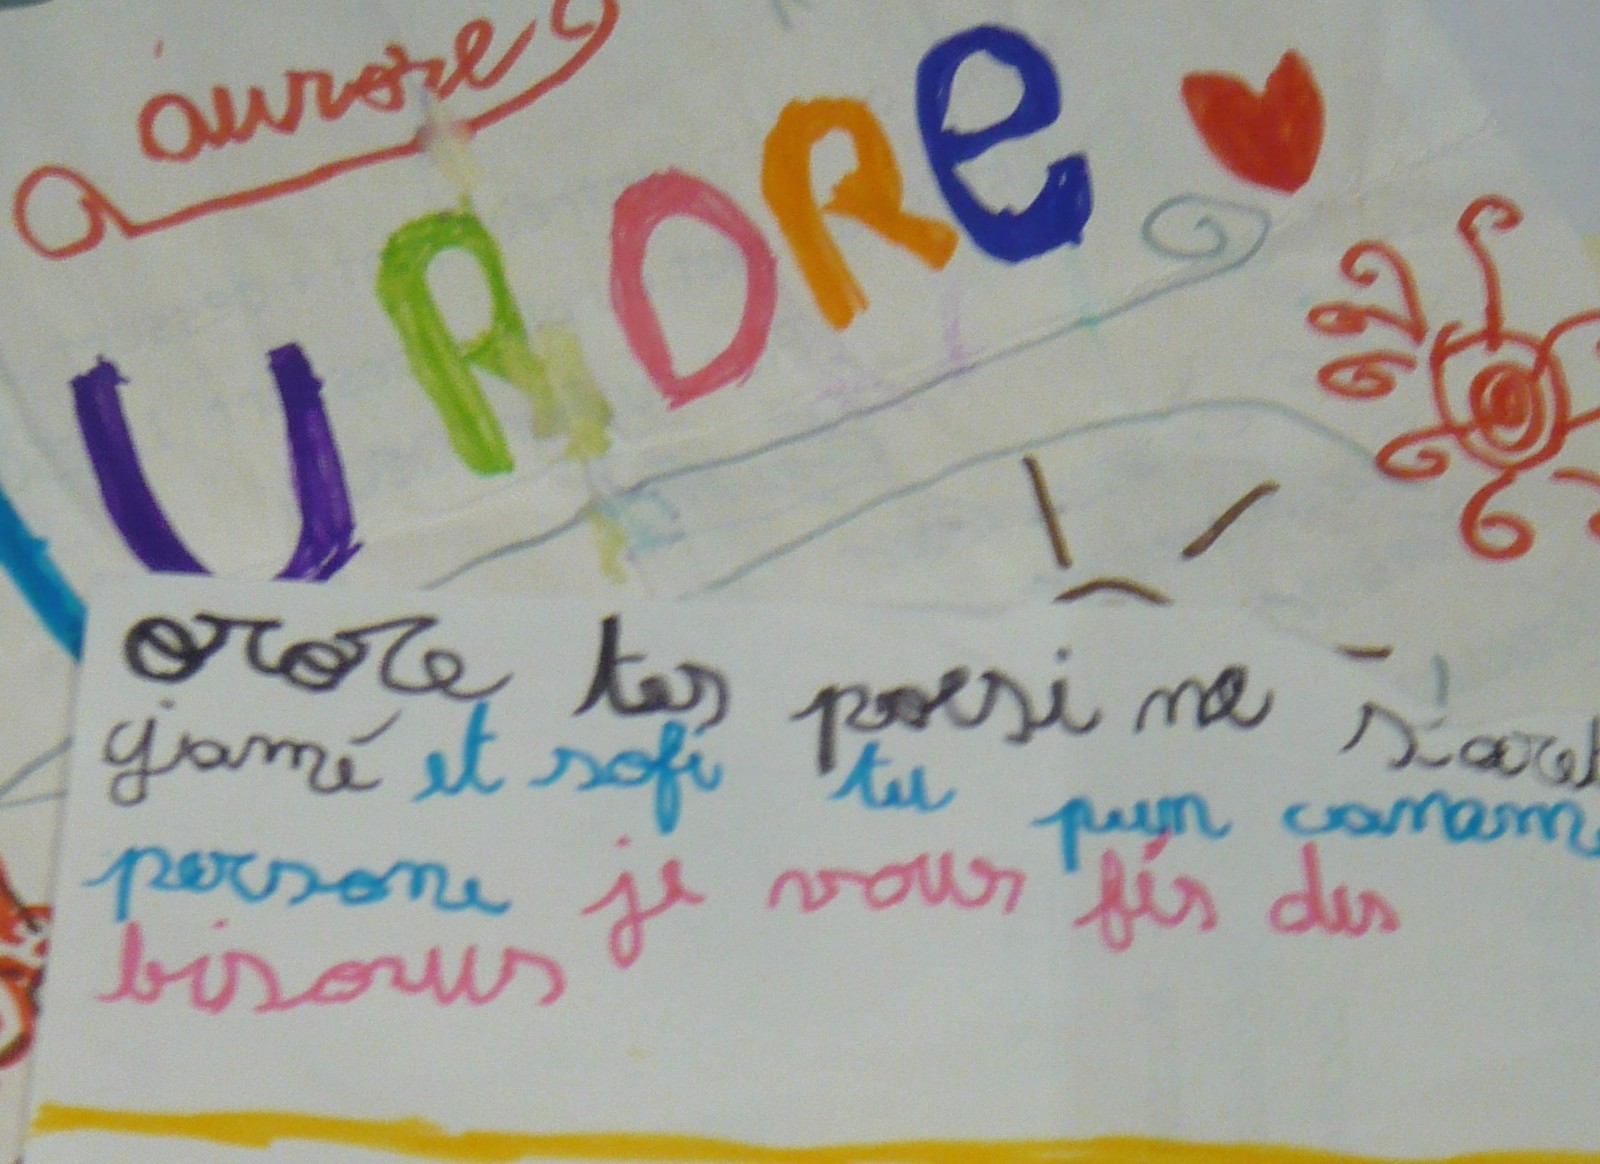 aurore
URORe
orore tes poesi ne s'aret
j'amé et sofi tu
pun
persone je vous fés des
bisous